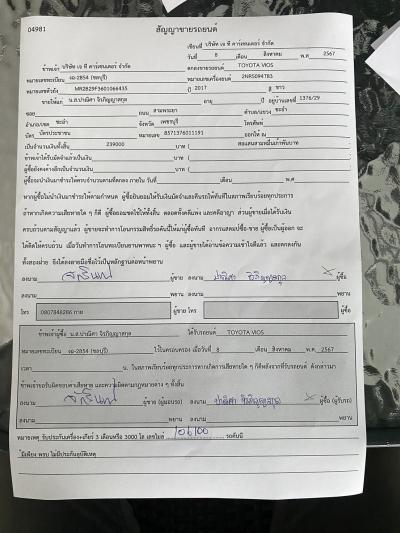 04981
สัญญาขายรถยนต์
เขียนที่ บริษัท เจ ที คาร์เซนเตอร์ จำกัด
วันที่ 8 เดือน สิงหาคม พ.ศ 2567
ข้าพเจ้า บริษัท เจ ที คาร์เซนเตอร์ จำกัด ตกลงขายรถยนต์ TOYOTA VIOS
หมายเลขทะเบียน งอ-2854 (ชลบุรี) หมายเลขเครื่องยนต์ 2NR5094783
หมายเลขตัวถัง MR2B29F3601066435 ปี 2017 สี ขาว
ขายให้แก่ น.ส.ปาณิศา จิรภิญญาสกุล อายุ ปี อยู่บ้านเลขที่ 1376/29
ซอย ถนน สามพระยา ตำบล/แขวง ชะอำ
อำเภอ/เขต ชะอำ จังหวัด เพชรบุรี โทรศัพท์
บัตร บัตรประชาชน หมายเลข 8571376011191 ออกให้ ณ
เป็นจำนวนเงินทั้งสิ้น 239000 บาท ( สองแสนสามหมื่นเก้าพันบาท
ข้าพเจ้าได้รับมัดจำแล้วเป็นเงิน บาท (
ผู้ซื้อยังคงค้างอีกเป็นจำนวนเงิน บาท (
ผู้ซื้อจะนำเงินมาชำระให้ครบจำนวนตามที่ตกลง ภายใน วันที่ เดือน พ.ศ
หากผู้ซื้อไม่นำเงินมาชำระตามกำหนด ผู้ซื้อยินยอมให้ริบเงินมัดจำและคืนรถให้ทันทีในสภาพเรียบร้อยทุกประการ
ถ้าหากเกิดความเสียหายใด ๆ ก็ดี ผู้ซื้อยอมชดใช้ให้ทั้งสิ้น ตลอดทั้งคดีแพ่ง และคดีอาญา ส่วนผู้ขายเมื่อได้รับเงิน
ครบถ้วนตามสัญญาแล้ว ผู้ขายจะทำการโอนกรรมสิทธิ์รถคันนี้ให้แก่ผู้ซื้อทันที
ทั้งสองฝ่าย จึงได้ลงลายมือชื่อไว้เป็นหลักฐานต่อหน้าพยาน
ลงนาม ผู้ขาย ลงนาม ปาณิศา จิรภิญญาสกุล ผู้ซื้อ
ลงนาม พยาน ลงนาม พยาน
โทร 0807848286 กาย ผู้ขาย โทร ผู้ซื้อ
ข้าพเจ้าผู้ซื้อ น.ส.ปาณิศา จิรภิญญาสกุล ได้รับรถยนต์ TOYOTA VIOS
หมายเลขทะเบียน งอ-2854 (ชลบุรี) ไว้ในครอบครอง เมื่อวันที่ 8 เดือน สิงหาคม พ.ศ 2567
เวลา น. ในสภาพเรียบร้อยทุกประการหากเกิดการเสียหายใด ๆ ก็ดีหลังจากที่รับรถยนต์ ดังกล่าวมา
ข้าพเจ้าขอรับผิดชอบค่าเสียหาย และความผิดตามกฎหมายต่าง ๆ ทั้งสิ้น
ลงนาม ผู้ขาย (ผู้มอบรถ) ลงนาม ปาณิศา จิรภิญญาสกุล ผู้ซื้อ (ผู้รับรถ)
ลงนาม พยาน ลงนาม พยาน
หมายเหตุ รับประกันเครื่อง+เกียร์ 3 เดือนหรือ 3000 โล เลขไมล์ 106100 รถคันนี้
มีเพียง พรบ ไม่มีประกันอุบัติเหตุ